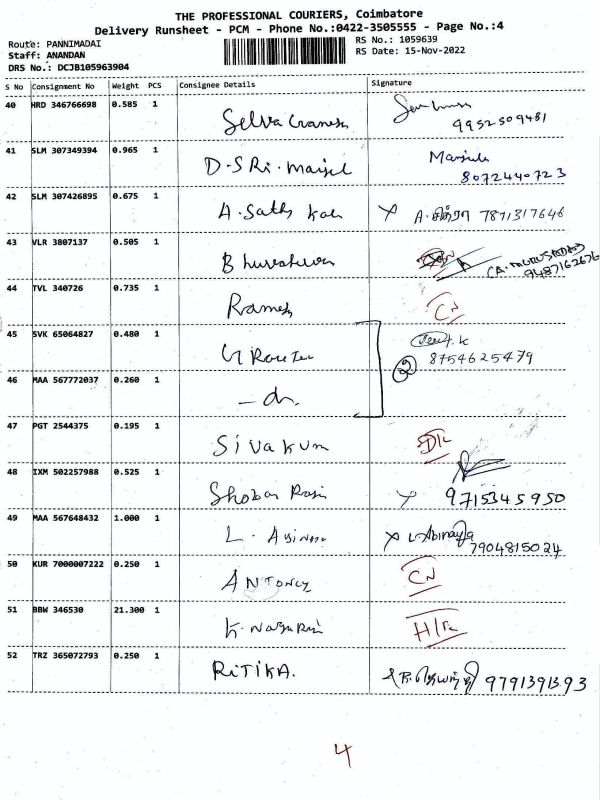 THE PROFESSIONAL COURIERS, Coimbatore
Delivery Runsheet - PCM - Phone No.:0422-3505555 - Page No.:4
Route: PANNIMADAI
RS No.: 1059639
Staff: ANANDAN
RS Date: 15-Nov-2022
DRS No.: DCJB105963904
S No Consignment No Weight PCS Consignee Details Signature
40 HRD 346766698 0.585 1 Selva
9952509481
41 SLM 307349394 0.965 1 D.SRi.
8072440723
42 SLM 307426895 0.675 1 A. X A. சித்ரா 7871317646
43 VLR 3807137 0.505 1
9487162676
44 TVL 340726 0.735 1 Ramesh CN
45 SVK 65064827 0.480 1
2 8754625479
46 MAA 567772037 0.260 1 -do.
47 PGT 2544375 0.195 1 Siva Kum D/L
48 IXM 502257988 0.525 1 Shoban X 9715345950
49 MAA 567648432 1.000 1 L. X L. Abinaya
7904815024
50 KUR 7000007222 0.250 1 ANTONCY CN
51 BBW 346530 21.300 1 K. H/L
52 TRZ 365072793 0.250 1 RITIKA. 9791391393
4